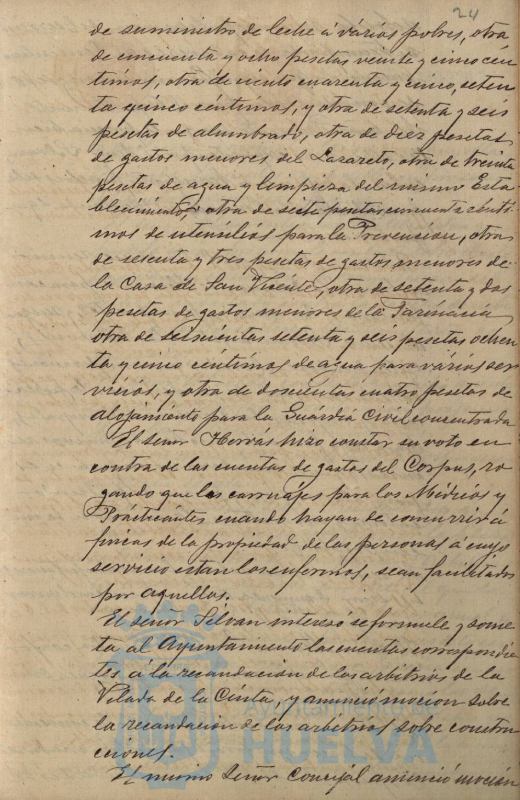 24
de suministro de leche á vários pobres, otra
de cincuenta y ocho pesetas veinte y cinco cén
timos, otra de ciento cuarenta y cinco, seten
ta y cinco centimos, y otra de setenta y seis
pesetas de alumbrado, otra de diez pesetas
de gastos menores del Lazareto, otra de treinta
pesetas de agua y limpieza del mismo Esta
blecimiento, otra de siete pesetas cincuenta cénti
mos de utensilios para la Prevencion, otra
de sesenta y tres pesetas de gastos menores de
la Casa de San Vicente, otra de setenta y dos
pesetas de gastos menores de la Farmacia
otra de seiscientas setenta y seis pesetas ochen
ta y cinco céntimos de agua para várias ser
vicios, y otra de doscientas cuatro pesetas de
alojamiento para la Guardia Civil concentrada
El señor Hervás hizo constar su voto en
contra de las cuentas de gastos del Corpus, ro
gando que los carruajes para los Médicos y
Practicantes cuando hayan de concurrir á
fincas de la propiedad de las personas á cuyo
servicio están los enfermos, sean facilitados
por aquellos.
El señor Selvan interesó se formule y some
ta al Ayuntamiento las cuentas correspondien
tes á la recaudacion de los arbitrios de la
Velada de la Cinta, y anunció mocion sobre
la recaudacion de los arbitrios sobre construc
ciones.
El mismo Señor Concejal anunció mocion
HUELVA